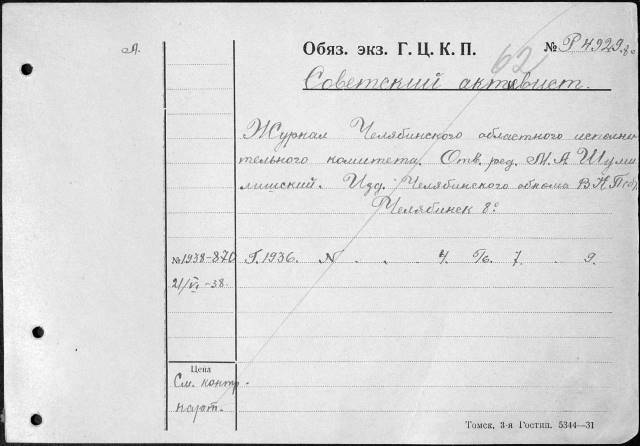 А.
Обяз. экз. Г. Ц. К. П. № Р 4929 8°
62
Советский активист.
Журнал Челябинского областного исполни-
тельного комитета. Отв. ред. М. А. Шуми-
лишский. Изд. Челябинского обкома ВКП(б)
Челябинск 8°
№1938-870 Г. 1936. N . . . 4. 5/6. 7. 9.
21/VI-38.
Цена
См. контр.
карт.
Томск, 3-я Гостип. 5344—31